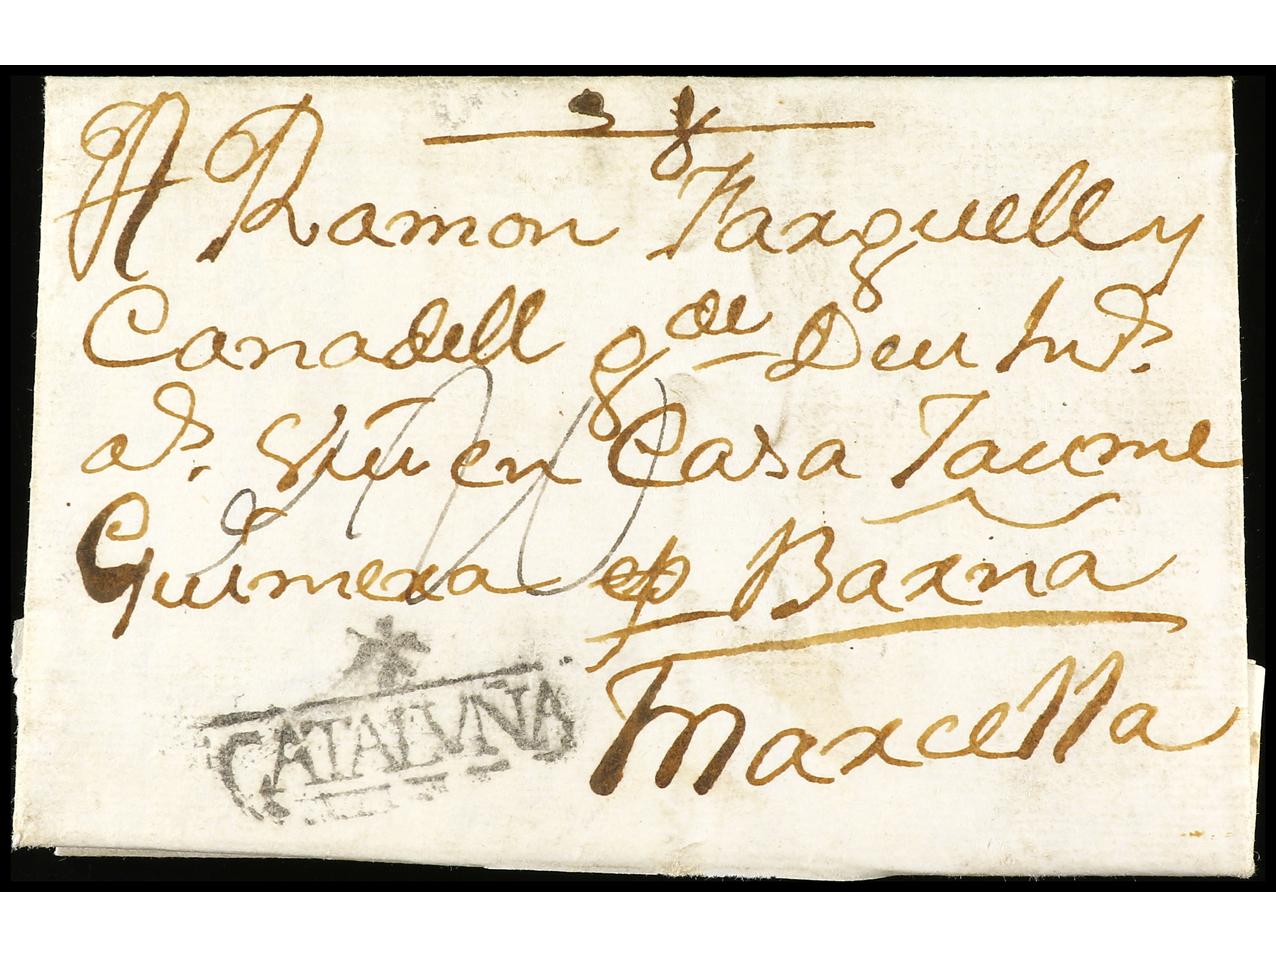 A Ramon Farguell y
Canadell gde Deu hid.
ad. Viu en Casa Jaume
Guimera ep Barna
Marcella
CATALUÑA